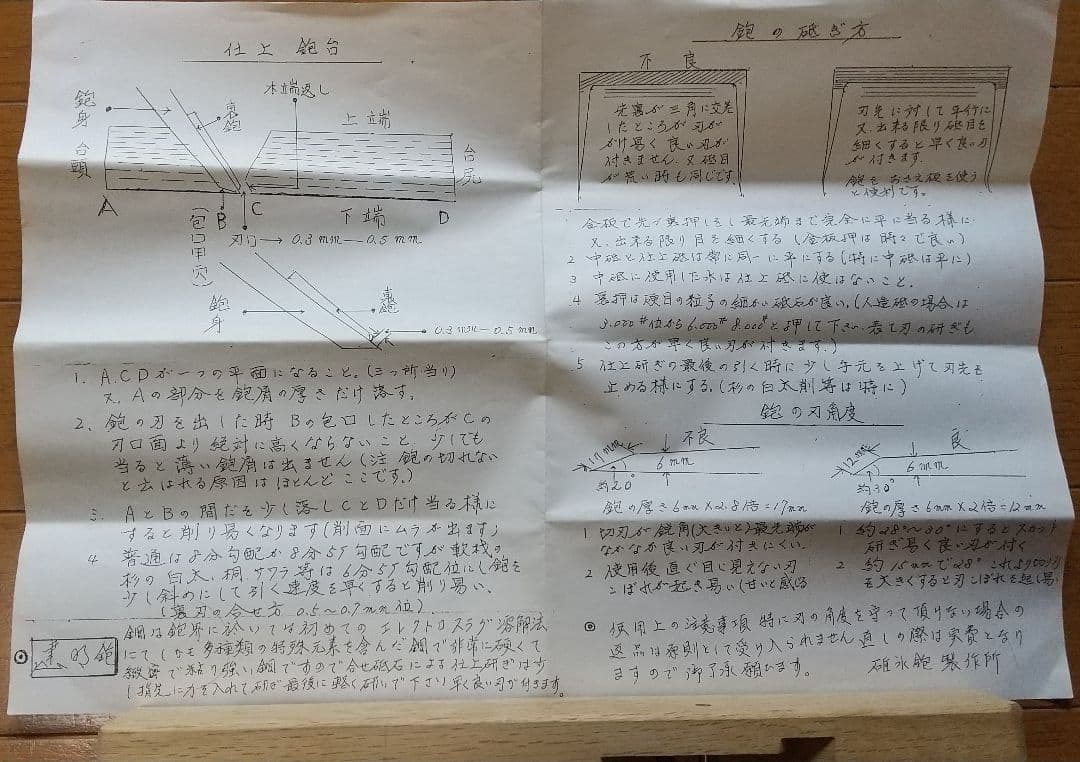 仕上鉋台
木端返し
鉋身
裏鉋
上端
台頭
台尻
A
B
C
下端
D
(包口甲穴)
刃口→0.3mm—0.5mm
鉋身
裏鉋
0.3mm—0.5mm
1. A.C.Dが一つの平面になること。(三つ所当り)
又、Aの部分を鉋屑の厚さだけ落す。
2. 鉋の刃を出した時Bの包口したところがCの
刃口面より絶対に高くならないこと 少しでも
当ると薄い鉋屑は出ません(注 鉋の切れない
と云はれる原因はほとんどここです。)
3. AとBの間だを少し落しCとDだけ当る様に
すると削り易くなります(削面にムラが出ます)
4 普通は8分勾配か8分5厘勾配ですが軟材の
杉の白太、桐、サワラ等は6分5厘勾配位にし鉋を
少し斜めにして引く速度を早くすると削り易い、
(裏刃の合せ方 0.5〜0.7mm位)
鋼は鉋界に於いては初めてのエレクトロスラグ溶解法
にてしかも多種類の特殊元素を含んだ鋼で非常に硬くて
緻密で粘り強い鋼ですので合せ砥石による仕上研ぎは少
し指先に力を入れて研ぎ最後に軽く研いで下さい早く良い刃が付きます。
鉋の砥ぎ方
不良
先裏が三角に交差
したところが刃が
かけ易く良い刃が
付きません 又砥目
が荒い時も同じです。
刃先に対して平行に
又、出来る限り砥目を
細くすると早く良い刃
が付きます。
鉋をおさえ板を使う
と便利です。
金板で先づ裏押しをし最先端まで完全に平に当る様に
又、出来る限り目を細くする(金板押は時々で良い)
2 中砥と仕上砥は常に同一に平にする(特に中砥は平に)
3 中砥に使用した水は仕上砥に使はないこと。
4 裏押は硬目の粒子の細かい砥石が良い。(人造砥の場合は
3.000#位から6.000#8.000#と押して下さい 表も刃の研ぎも
この方が早く良い刃が付きます。)
5 仕上研ぎの最後の引く時に少し手元を上げて刃先を
止める様にする。(杉の白太削等は特に)
鉋の刃角度
不良
17mm
6mm
約20°
良
12mm
6mm
約30°
鉋の厚さ6mm×2.8倍=17mm
鉋の厚さ6mm×2倍=12mm
1 切刃が鋭角(大きいと)最先端が
なかなか良い刃が付きにくい。
2 使用後直ぐ目に見えない刃
こぼれが起き易い(せいと感る
1 約28°〜30°にするとスカット
研ぎ易く良い刃が付く
2 約15mmで28° これより切刃
を大きくすると刃こぼれを起し易い
◎ 使用上の注意事項 特に刃の角度を守って頂けない場合の
返品は原則として受け入られません 直しの際は実費となり
ますので御了承願ひます。
碓氷鉋製作所